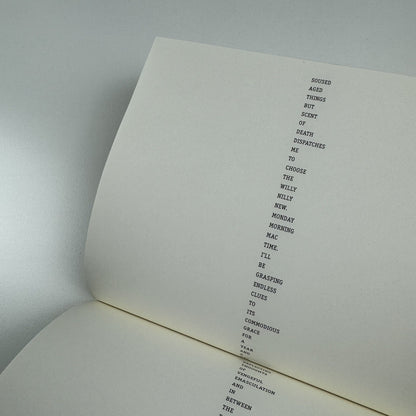 SOUSED
AGED
THINGS
BUT
SCENT
OF
DEATH
DISPATCHES
ME
TO
CHOOSE
THE
WILLY
NILLY
NEW.
MONDAY
MORNING
MAC
TIME.
I'LL
BE
GRASPING
ENDLESS
CLUES
TO
ITS
COMMODIOUS
GRACE
FOR
A
YEAR
AND
OF
VENGEFUL
EMASCULATION
AND
IN
BETWEEN
THE